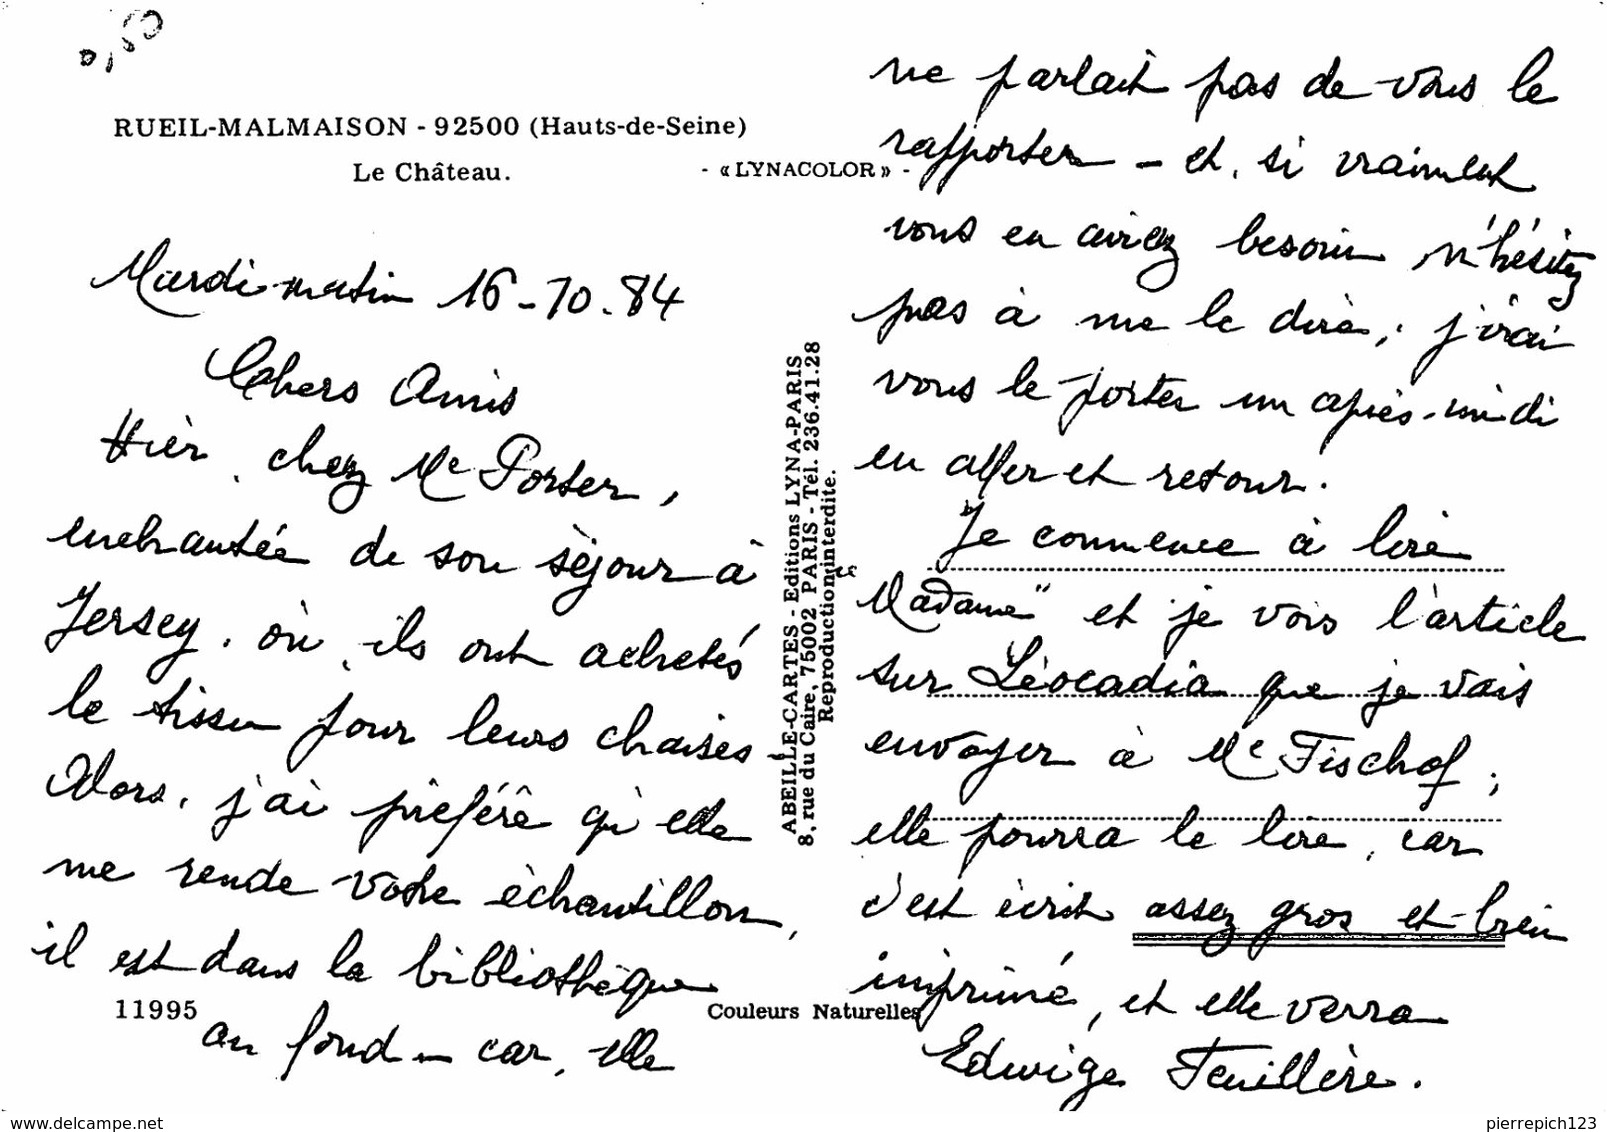 0,50
RUEIL-MALMAISON - 92500 (Hauts-de-Seine)
Le Château.
- « LYNACOLOR » -
Mardi matin 16-10.84
Chers Amis
Hier, chez Me Porter,
enchantée de son séjour à
Jersey, où, ils ont achetés
le tissu pour leurs chaises -
Alors, j'ai préféré qu'elle
me rende votre échantillon,
il est dans la bibliothèque
au fond - car, elle
11995
Couleurs Naturelles
ABEILLE-CARTES - Editions LYNA-PARIS
8, rue du Caire, 75002 PARIS - Tél. 236.41.28
Reproduction interdite.
ne parlait pas de vous le
rapporter - et, si vraiment
vous en aviez besoin n'hésitez
pas à me le dire, j'irai
vous le porter un après-midi
en aller et retour.
Je commence à lire
le Madame" et je vois l'article
sur Léocadia que je vais
envoyer à Me Fischof ;
elle pourra le lire, car
c'est écrit assez gros et bien
imprimé, et elle verra
Edwige Feuillère.
www.delcampe.net
pierrepich123